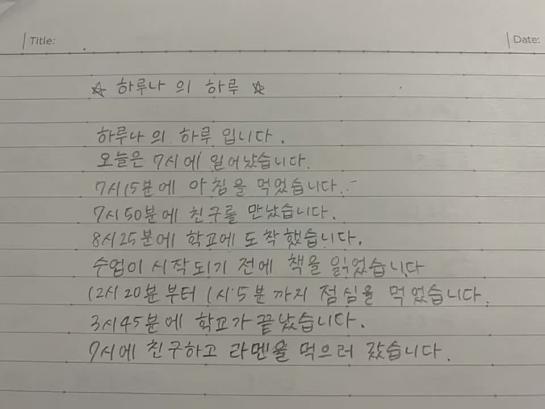 Title:
Date:
☆ 하루나의 하루 ☆
하루나의 하루입니다.
오늘은 7시에 일어났습니다.
7시15분에 아침을 먹었습니다.
7시50분에 친구를 만났습니다.
8시25분에 학교에 도착했습니다.
수업이 시작되기 전에 책을 읽었습니다
12시20분부터 1시5분까지 점심을 먹었습니다.
3시45분에 학교가 끝났습니다.
7시에 친구하고 라멘을 먹으러 갔습니다.